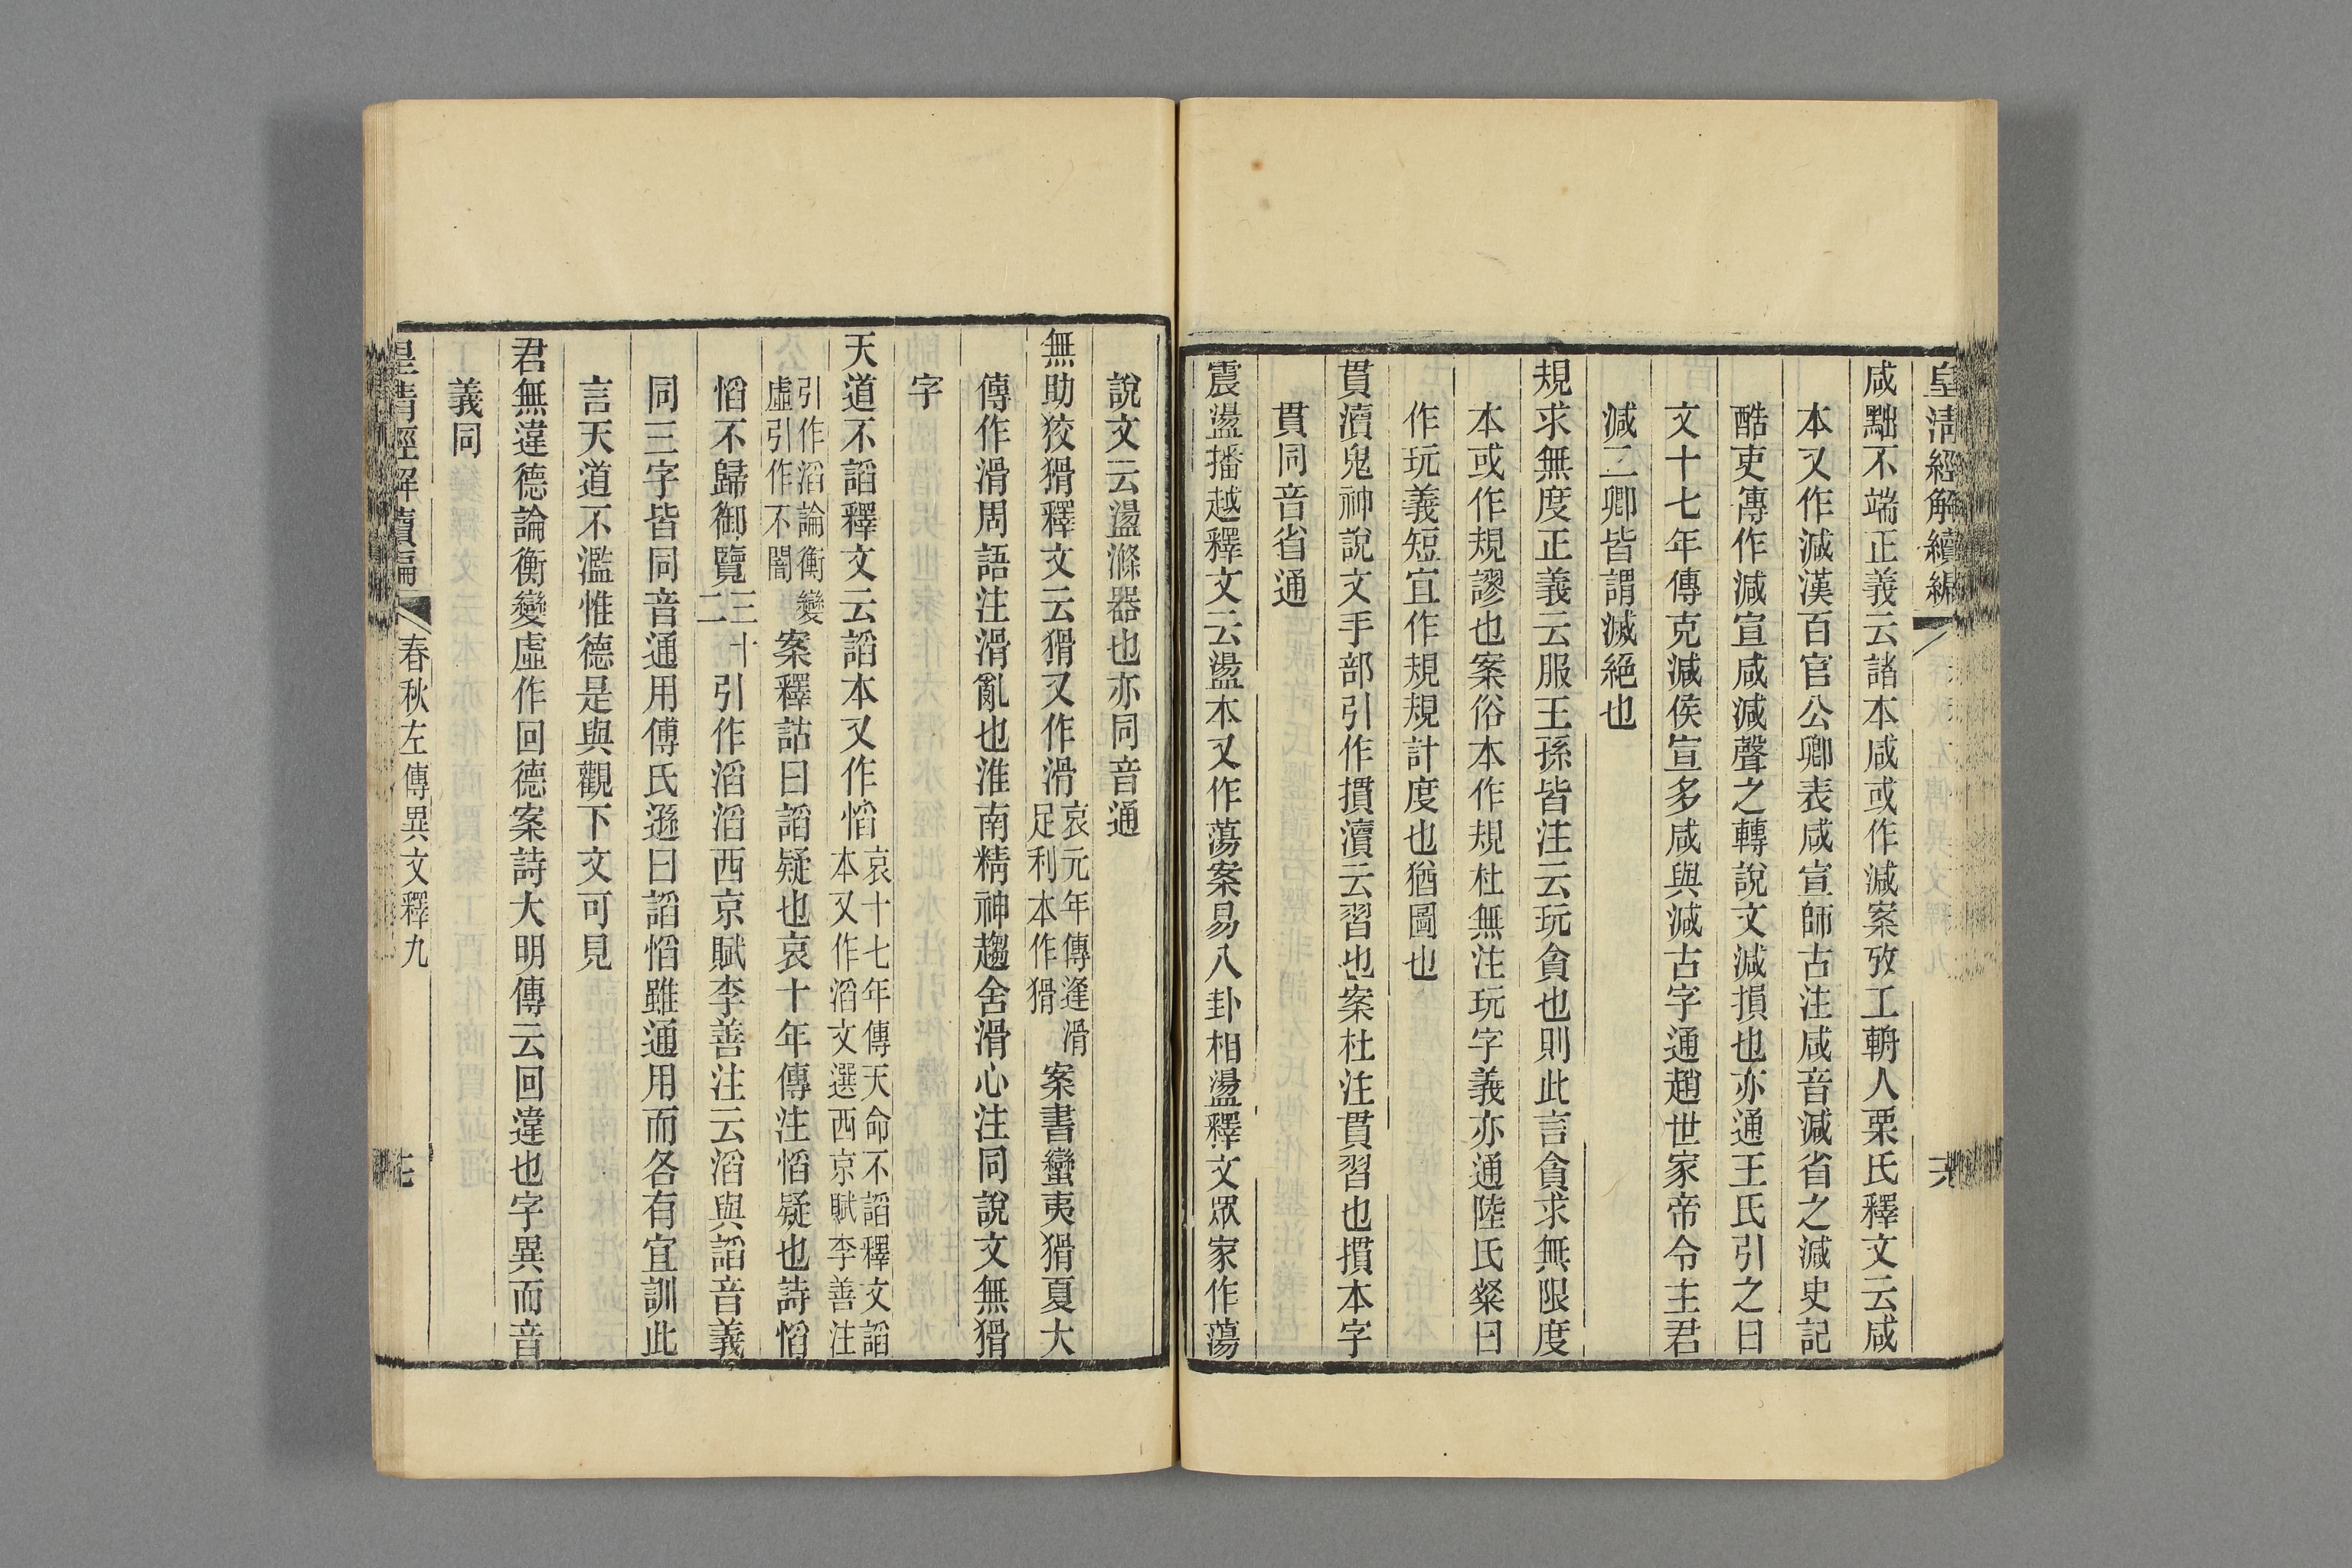 皇清經解續編
咸黜不端正義云諸本咸或作減案攷工輈人栗氏釋文云咸
本又作減漢百官公卿表咸宣師古注咸音減省之減史記
酷吏傳作減宣咸減聲之轉說文減損也亦通王氏引之曰
文十七年傳克減侯宣多咸與減古字通趙世家帝令主君
減二卿皆謂滅絕也
規求無度正義云服王孫皆注云玩貪也則此言貪求無限度
本或作規謬也案俗本作規杜無注玩字義亦通陸氏粲曰
作玩義短宜作規規計度也猶圖也
貫瀆鬼神說文手部引作摜瀆云習也案杜注貫習也摜本字
貫同音省通
震盪播越釋文云盪本又作蕩案易八卦相盪釋文眾家作蕩
說文云盪滌器也亦同音通
無助狡猾釋文云猾又作滑哀元年傳逢滑足利本作猾案書蠻夷猾夏大
傳作滑周語注滑亂也淮南精神趨舍滑心注同說文無猾
字
天道不謟釋文云謟本又作慆哀十七年傳天命不謟釋文謟本又作滔文選西京賦李善注
引作滔論衡變虛引作不闇案釋詁曰謟疑也哀十年傳注慆疑也詩慆
慆不歸御覽三十二引作滔滔西京賦李善注云滔與謟音義
同三字皆同音通用傅氏遜曰謟慆雖通用而各有宜訓此
言天道不濫惟德是與觀下文可見
君無違德論衡變虛作回德案詩大明傳云回違也字異而音
義同
皇清經解續編
春秋左傳異文釋九